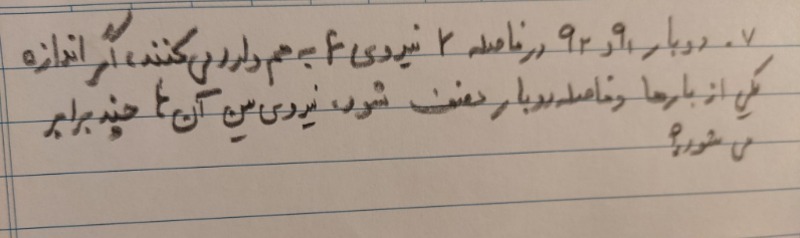 ۷. دوبار q₁ و q₂ در فاصله r نیروی F به هم وارد می کنند، اگر اندازه
یکی از بارها و فاصله دوبار نصف شود، نیروی بین آن ها چند برابر
می شود؟